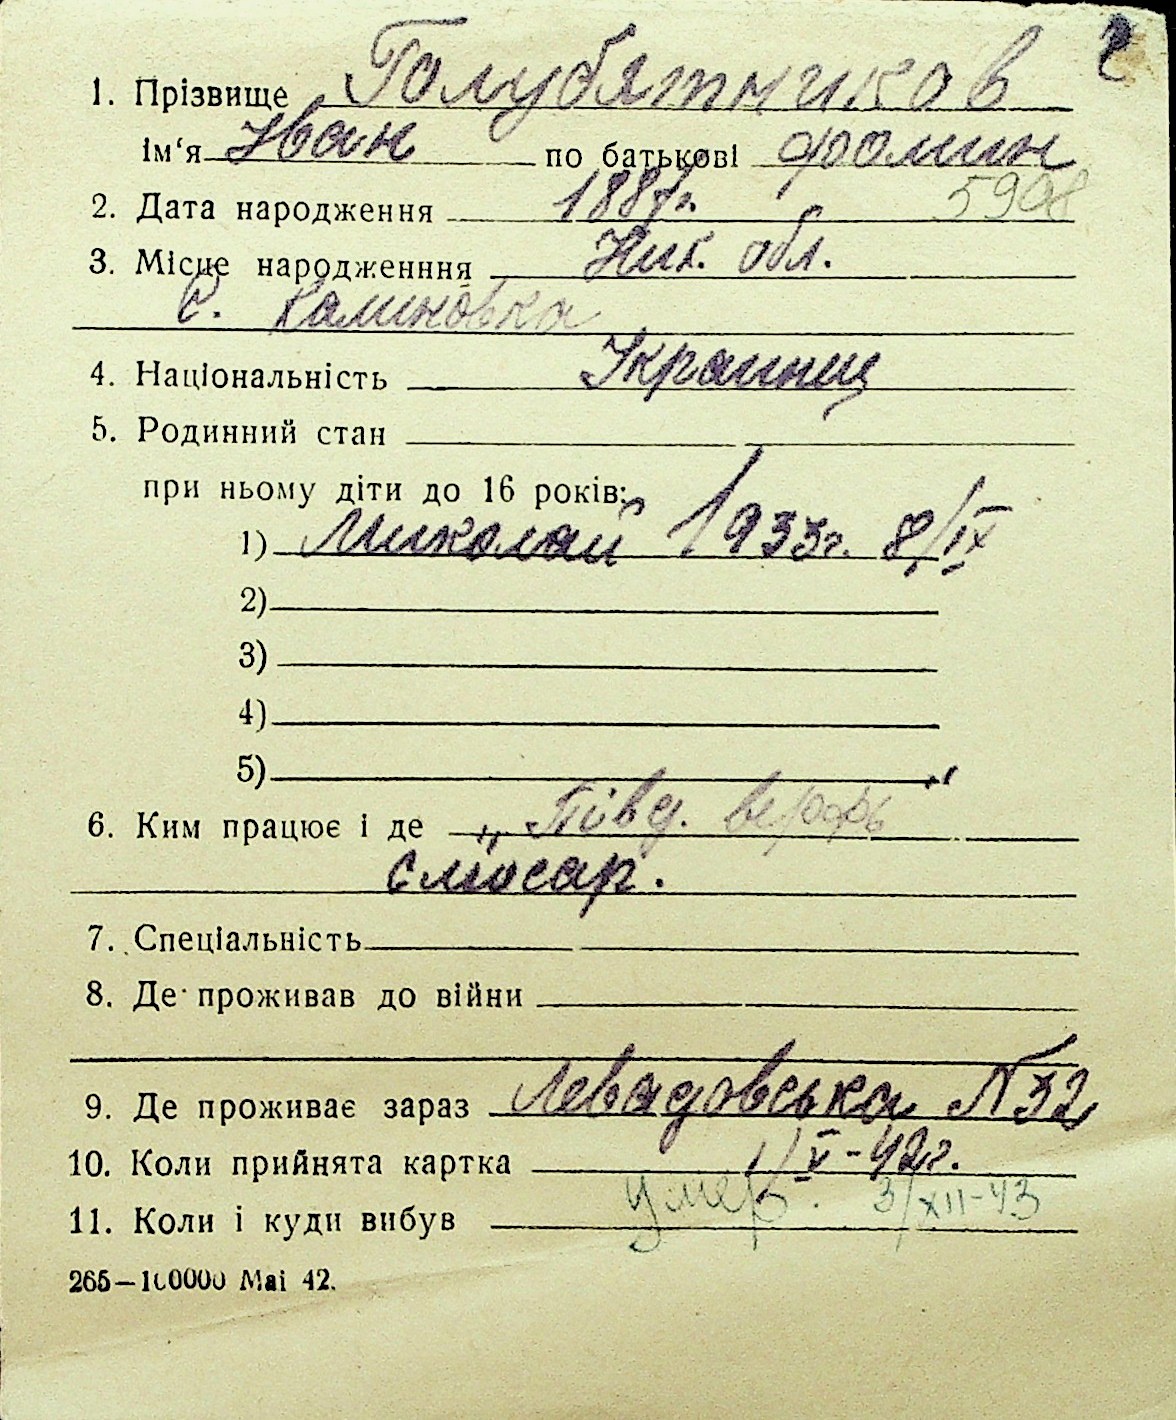 1. Прізвище Голубятников
ім'я Иван по батькові Фомин
2. Дата народження 1887г. 5908
3. Місце народженння Ник. обл.
с. Калиновка
4. Національність Украинец
5. Родинний стан
при ньому діти до 16 років:
1) Николай 1933г. 8/IX
2)
3)
4)
5)
6. Ким працює і де „Півд. верфь"
слюсар.
7. Спеціальність
8. Де проживав до війни
9. Де проживає зараз Левадовська № 32
10. Коли прийнята картка 1/V-42г.
11. Коли і куди вибув умер. 3/XII-43
265—100000 Mai 42.